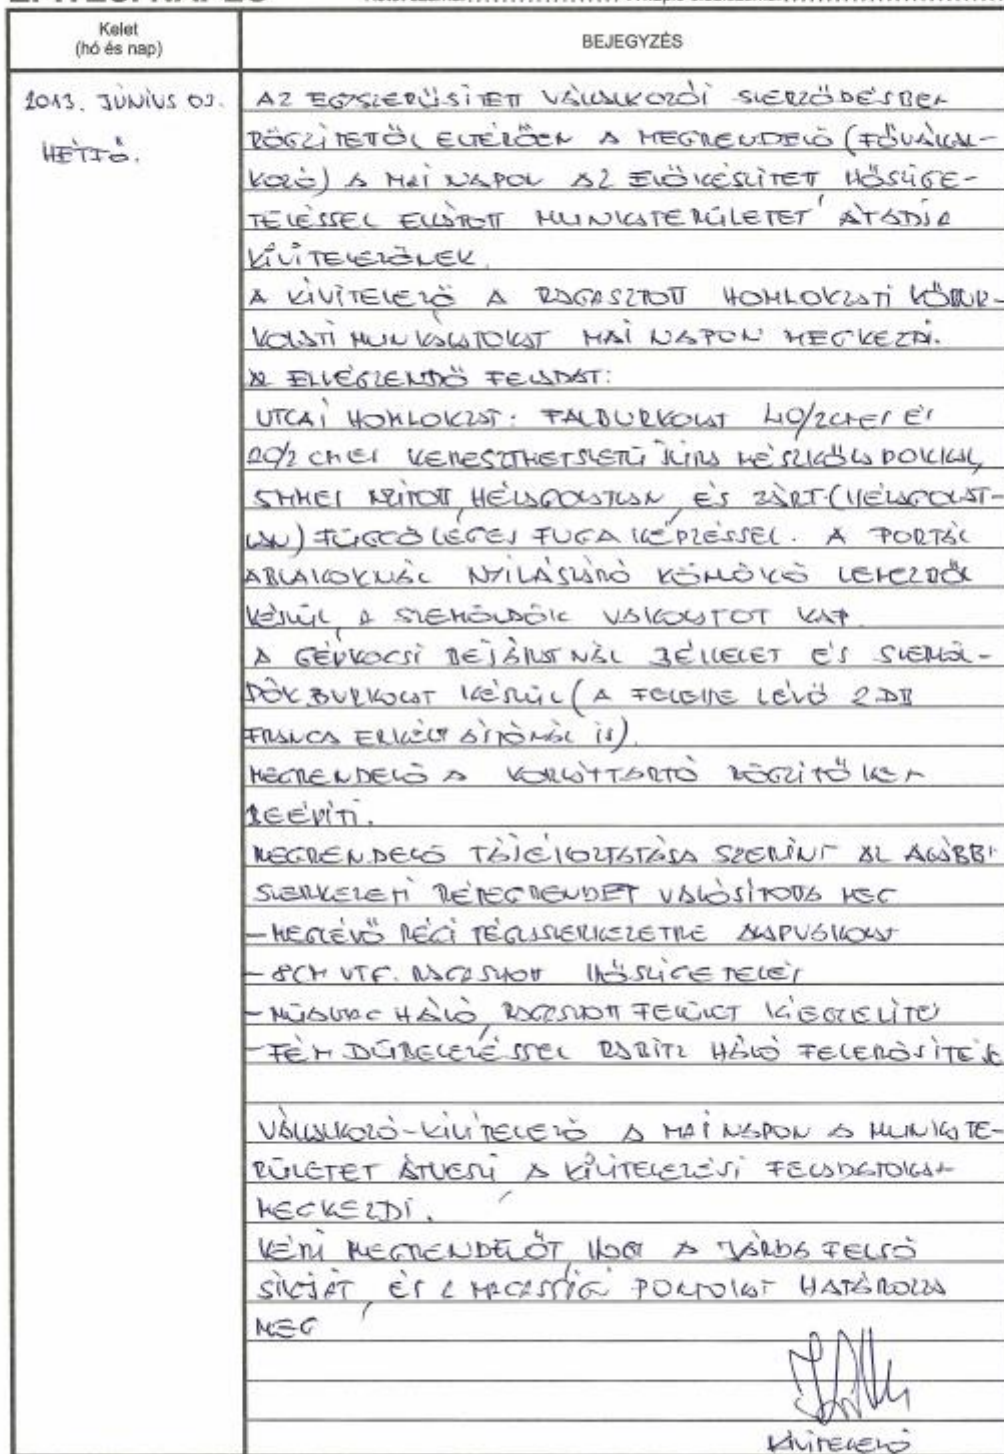 Kelet
(hó és nap)
BEJEGYZÉS
2013. JÚNIUS 03.
HÉTFŐ.
AZ EGYSZERŰSÍTETT VÁLLALKOZÓI SZERZŐDÉSBEN
RÖGZÍTETŐL ELTÉRŐEN A MEGRENDELŐ (FŐVÁLLAL-
KOZÓ) A MAI NAPON AZ ELŐKÉSZÍTETT HŐSZIGE-
TELÉSSEL ELLÁTOTT MUNKATERÜLETET ÁTADJA
KIVITELEZŐNEK.
A KIVITELEZŐ A RAGASZTOTT HOMLOKZATI KŐBUR-
KOLATI MUNKÁLATOKAT MAI NAPON MEGKEZDI.
AZ ELVÉGZENDŐ FELADAT:
UTCAI HOMLOKZAT: FALBURKOLAT 40/2CM ES ÉS
20/2 CM ES KERESZTMETSZETŰ JURA MÉSZKŐLAPOKKAL,
5MM ES NYITOTT, HÉZAGOLATLAN, ÉS ZÁRT (HÉZAGOLAT-
LAN) FÜGGŐLEGES FUGA KÉPZÉSSEL. A PORTÁL
ABLAKOKNÁL NYÍLÁSZÁRÓ KÖMŐKŐ LEMEZBŐL
KÉSZÜL, A SZEMÖLDÖK VAKOLATOT KAP.
A GÉPKOCSI BEJÁRATNÁL BÉLLELET ÉS SZEMÖL-
DÖK BURKOLAT KÉSZÜL (A FELETTE LÉVŐ 2 DB
FRANCIA ERKÉLY AJTÓNÁL IS).
MEGRENDELŐ A KORLÁTTARTÓ RÖGZÍTŐKET
BEÉPÍTI.
MEGRENDELŐ TÁJÉKOZTATÁSA SZERINT AZ ALÁBBI
SZERKEZETI RÉTEGRENDET VALÓSÍTOTTA MEG
- MEGLÉVŐ RÉGI TÉGLASZERKEZETRE ALAPVAKOLAT
- 8CM VTG. RAGASZTOTT HŐSZIGETELÉS
- MŰANYAG HÁLÓ, RAGASZTOTT FELÜLET KIEGYENLÍTÉS
- FÉM DŰBELEZÉSSEL RABITZ HÁLÓ FELERŐSÍTÉSE
VÁLLALKOZÓ-KIVITELEZŐ A MAI NAPON A MUNKATE-
RÜLETET ÁTVESZI, A KIVITELEZÉSI FELADATOKAT
MEGKEZDI.
KÉRI MEGRENDELŐT, HOGY A JÁRDA FELSŐ
SÍKJÁT, ÉS A MAGASSÁGI PONTOKAT HATÁROZZA
MEG
KIVITELEZŐ